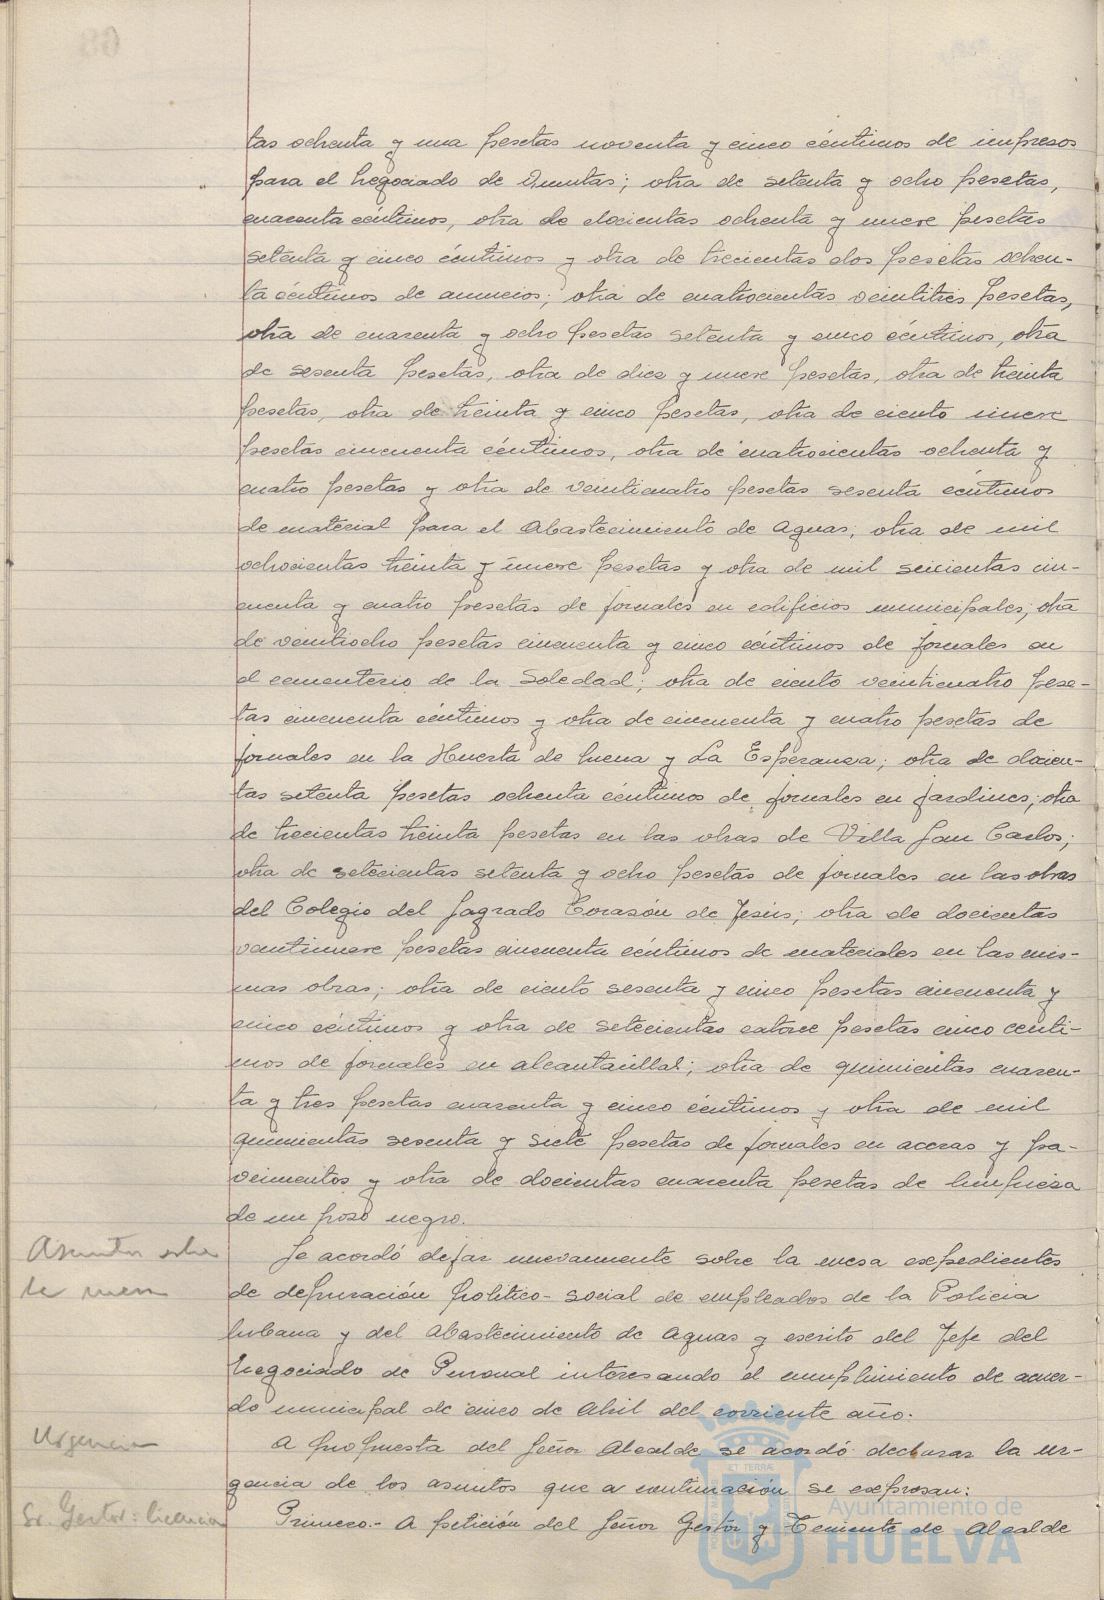 tas ochenta y una pesetas noventa y cinco céntimos de impresos
para el Negociado de Quintas; otra de setenta y ocho pesetas,
cuarenta céntimos, otra de docientas ochenta y nueve pesetas
setenta y cinco céntimos y otra de trecientas dos pesetas ochen-
ta céntimos de anuncios; otra de cuatrocientas veintitres pesetas,
otra de cuarenta y ocho pesetas setenta y cinco céntimos, otra
de sesenta pesetas, otra de diez y nueve pesetas, otra de treinta
pesetas, otra de treinta y cinco pesetas, otra de ciento nueve
pesetas cincuenta céntimos, otra de cuatrocientas ochenta y
cuatro pesetas y otra de veinticuatro pesetas sesenta céntimos
de material para el Abastecimiento de Aguas; otra de mil
ochocientas treinta y nueve pesetas y otra de mil seicientas cin-
cuenta y cuatro pesetas de jornales en edificios municipales; otra
de veintiocho pesetas cincuenta y cinco céntimos de jornales en
el cementerio de la Soledad; otra de ciento veinticuatro pese-
tas cincuenta céntimos y otra de cincuenta y cuatro pesetas de
jornales en la Huerta de Mena y La Esperanza; otra de docien-
tas setenta pesetas ochenta céntimos de jornales en jardines; otra
de trecientas treinta pesetas en las obras de Villa San Carlos;
otra de setecientas setenta y ocho pesetas de jornales en las obras
del Colegio del Sagrado Corazón de Jesús; otra de docientas
veintinueve pesetas cincuenta céntimos de materiales en las mis-
mas obras; otra de ciento sesenta y cinco pesetas cincuenta y
cinco céntimos y otra de setecientas catorce pesetas cinco centi-
mos de jornales en alcantarillas; otra de quinientas cuaren-
ta y tres pesetas cuarenta y cinco céntimos y otra de mil
quinientas sesenta y siete pesetas de jornales en aceras y pa-
vimentos y otra de docientas cuarenta pesetas de limpieza
de un pozo negro.
Asuntos sobre
la mesa
Se acordó dejar nuevamente sobre la mesa expedientes
de depuración político-social de empleados de la Policia
Urbana y del Abastecimiento de Aguas y escrito del Jefe del
Negociado de Personal interesando el cumplimiento de acuer-
do municipal de cinco de Abril del corriente año.
Urgencia
A propuesta del Señor Alcalde se acordó declarar la ur-
gencia de los asuntos que a continuación se expresan:
Sr. Gestor: licencia
Primero.- A petición del Señor Gestor y Teniente de Alcalde
Ayuntamiento de
HUELVA